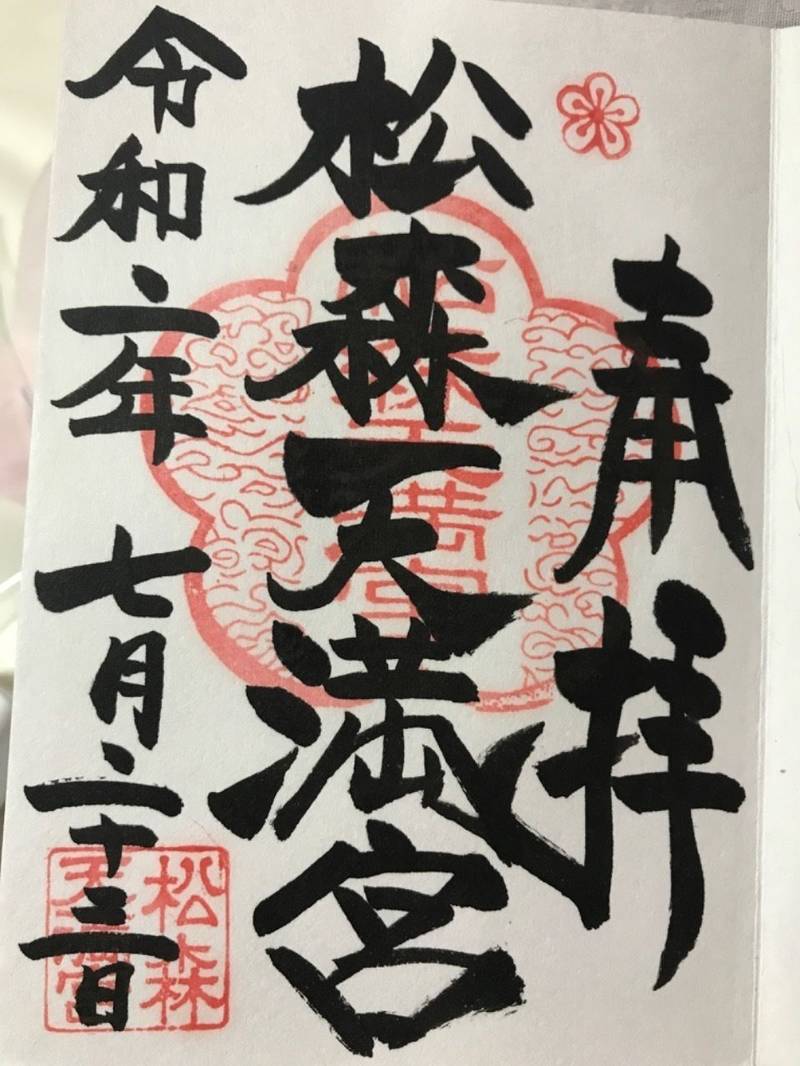 奉拝
松森天満宮
令和二年七月二十三日
松森天満宮
松森
天満宮